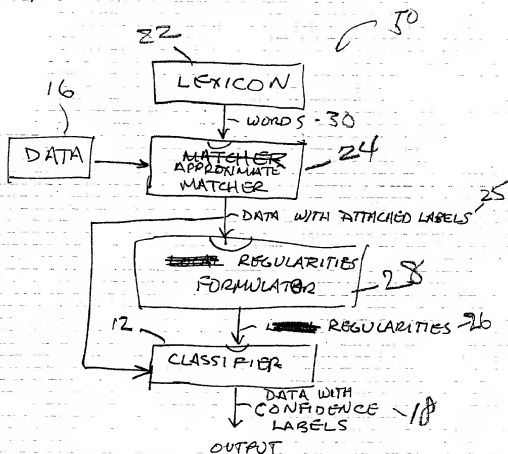 50
22
LEXICON
16
WORDS - 30
DATA
MATCHER
APPROXIMATE
MATCHER
24
DATA WITH ATTACHED LABELS 25
REGULARITIES
FORMULATOR
28
REGULARITIES - 26
12
CLASSIFIER
DATA WITH
CONFIDENCE
LABELS
18
OUTPUT